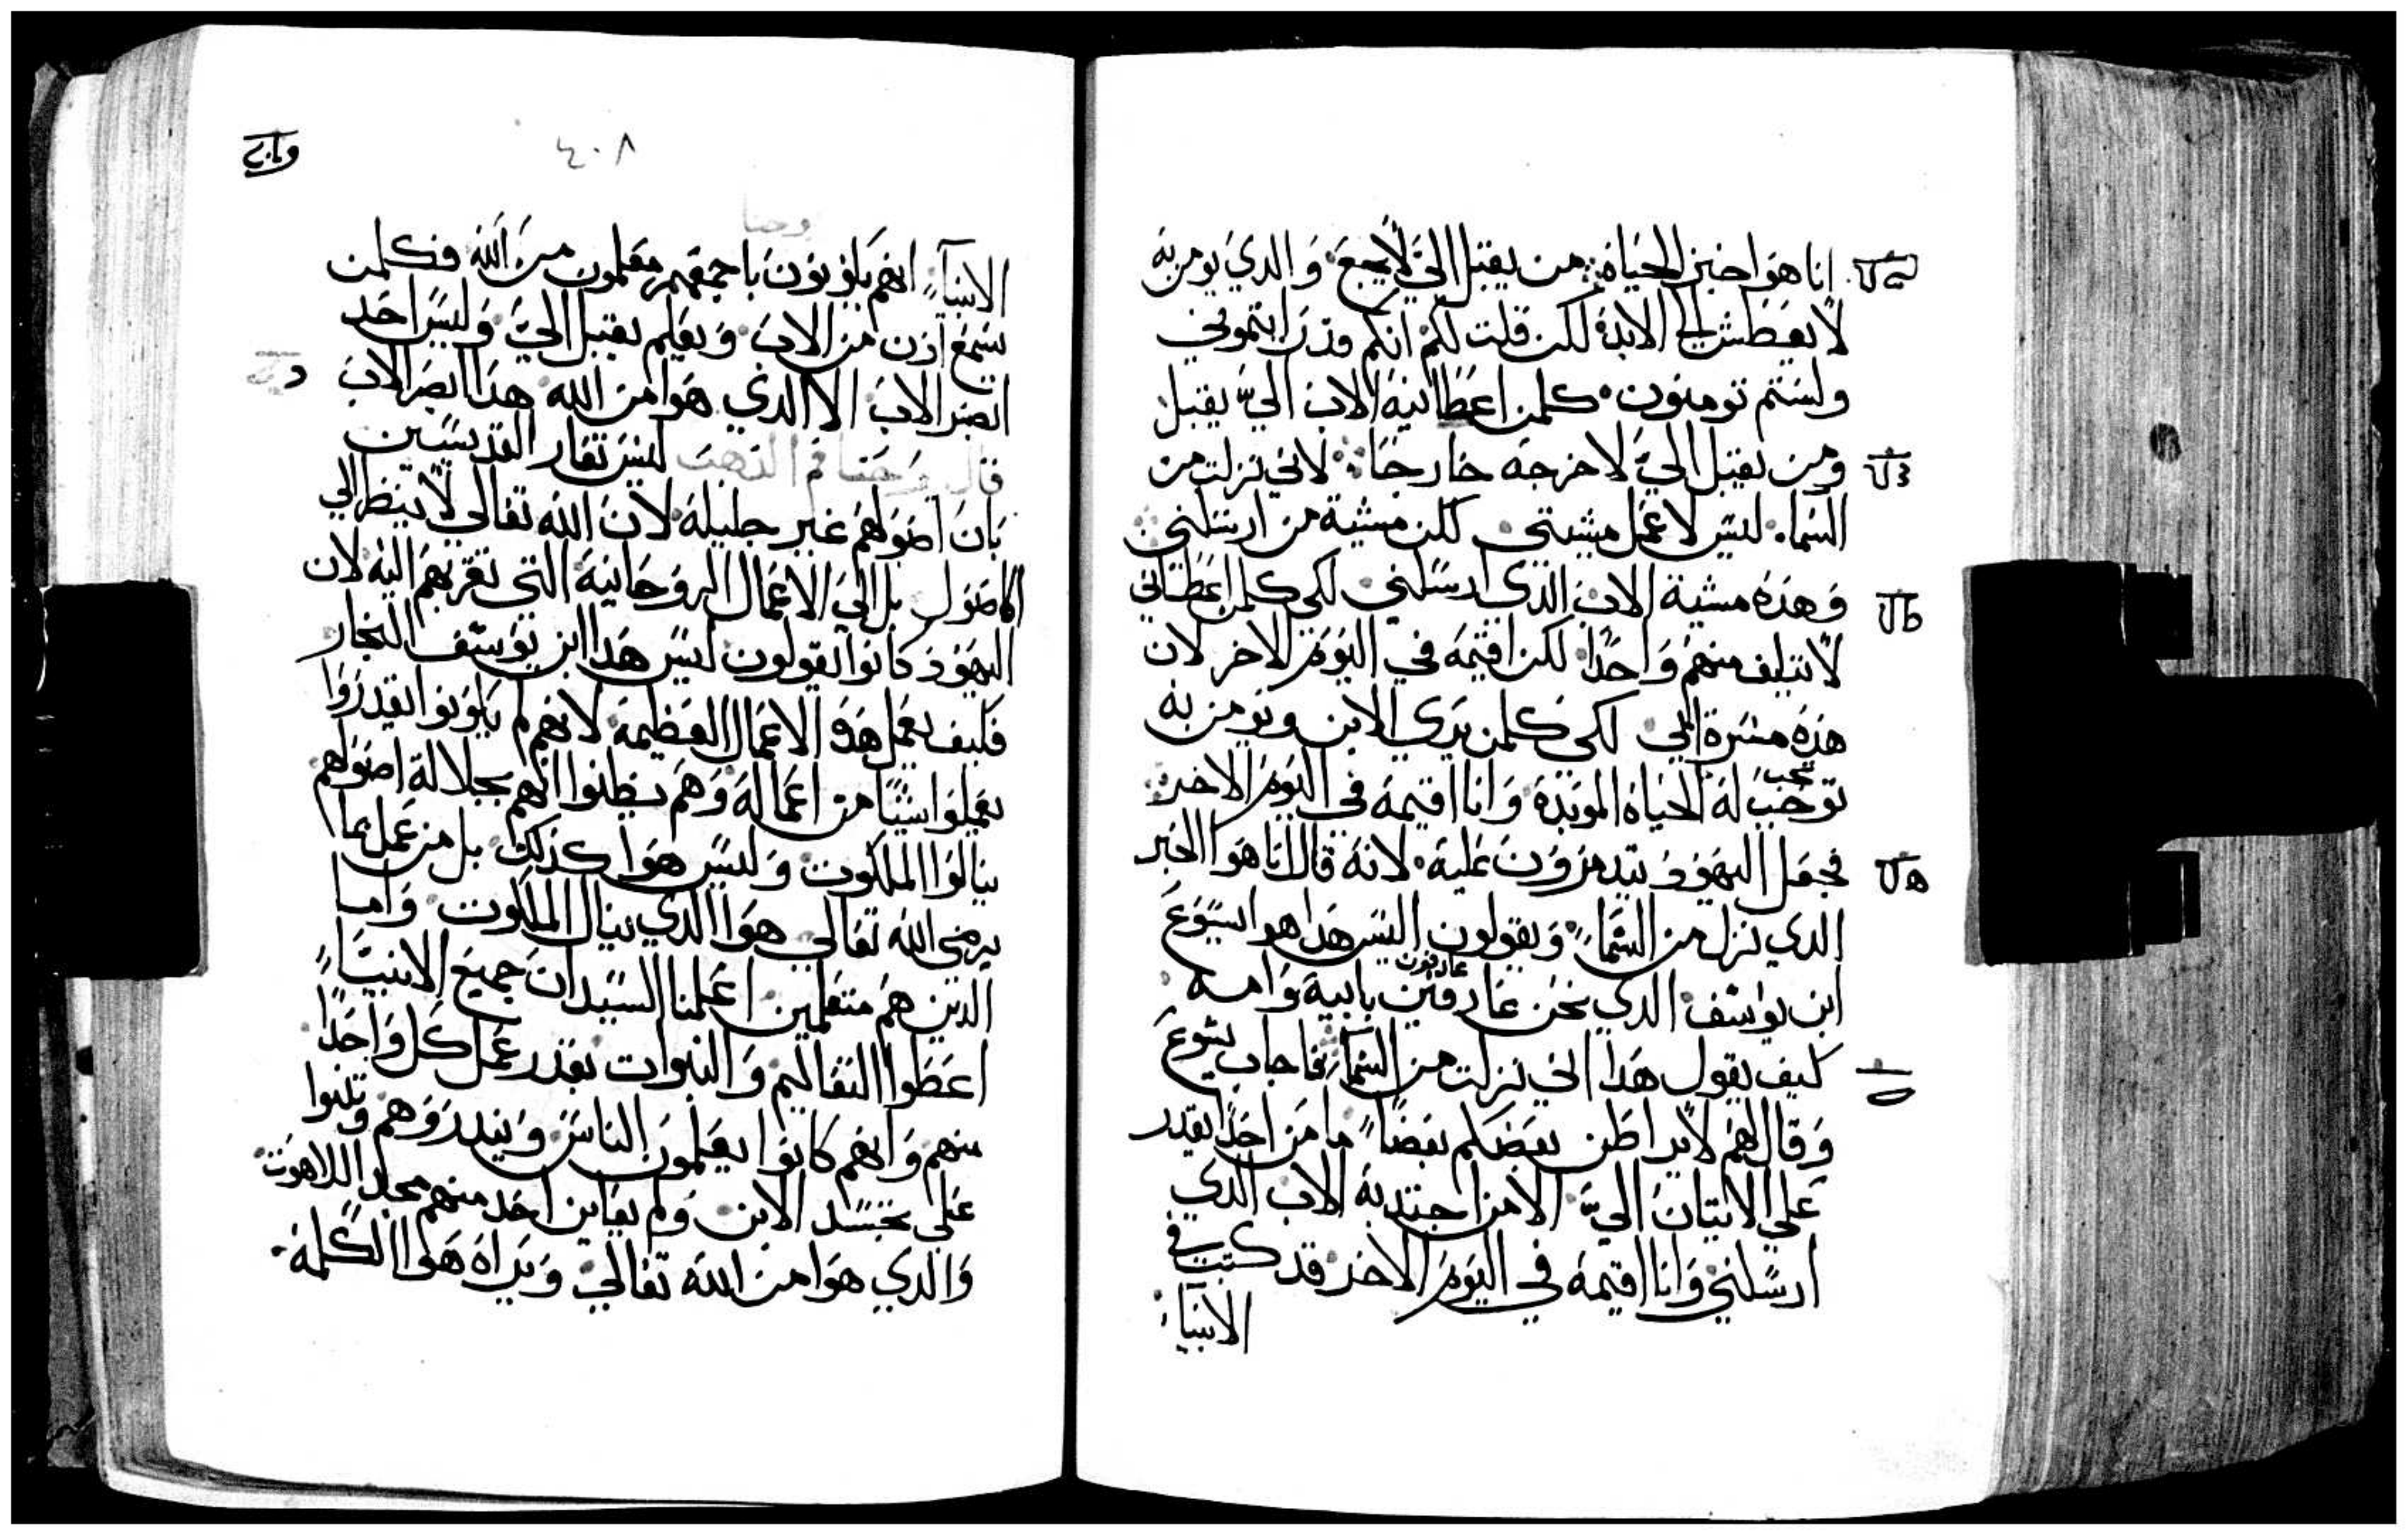 انا هوا خبز الحياه من يقبل الي لا يجع والدي يومن به
لا يعطش الي الابد لكن قلت لكم انكم قد رايتموني
ولستم تومنون كلمن اعطانيه الاب الي يقبل
ومن يقبل الي لا خرجه خارجا لاني نزلت من
السما ليس لاعمل مشيتي لكن مشية من ارسلني
وهذه مشية الاب الذي ارسلني لكي كلمن اعطاني
لا يتلف منهم واحدا لكن اقيمه في اليوم الاخر لان
هذه مسرة ابي لكي كلمن يري الابن ويومن به
تجب
توجب له الحياه الموبده وانا اقيمه في اليوم الاخر
فجعل اليهود يتدمرون عليه لانه قال انا هوا الخبز
الدي نزل من السما ويقولون اليس هدا هو ايسوع
عارفون
ابن يوسف الدي نحن عارفين بابيه وامه
كيف يقول هدا اني نزلت من السما فاجاب يسوع
وقال لهم لا يراطن بعضكم بعضا ما من احدا يقدر
علي الاتيان الي الا من اجتدبه الاب الدي
ارسلني وانا اقيمه في اليوم الاخر قد كتب في
الانبيا
٤٠٨
الانبيآء انهم يكونون باجمعهم معلمون من الله فكلمن
يسمع ادن من الاب ويعلم يقبل الي وليس احد
ابصر الاب الا الدي هوا من الله هدا ابصر الاب
قال يوحنا فم الدهب ليس تعار القديسين
بان اصولهم غير جليله لان الله تعالي لا ينظر الي
الاصول بل الي الاعمال الروحانيه التي تقربهم اليه لان
اليهود كانوا يقولون ليس هدا ابن يوسف النجار
فكيف يعمل هده الاعمال العظيمه لانهم لم يكونوا يقدروا
يعملوا شيا من اعماله وهم يظنوا انهم بجلالة اصولهم
ينالوا الملكوت وليس هوا كذلك بل من عمل بما
يرضي الله تعالي هوا الدي ينال الملكوت واما
الدين هم متعلمين اعلمنا السيد ان جميع الانبيآء
اعطوا التعاليم والنبوات بقدر عمل كل واحدا
منهم وانهم كانوا يعلمون الناس ويندروهم وتنبوا
علي تجسد الابن ولم يعاين احد منهم مجد اللاهوت
والدي هوا من الله تعالي ويراه هوا الكلمه